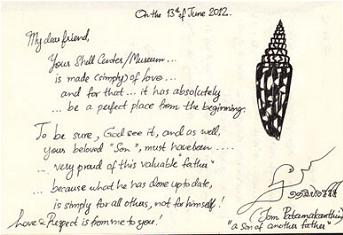 On the 13th of June 2012.
My dear friend,
Your Shell Center/Museum...
is made (simply) of love...
and for that... it has absolutely
... be a perfect place from the beginning.
To be sure, God see it, and as well,
your beloved "Son", must have been ....
... very proud of this valuable "father"
... because what he has done up to date,
is simply for all others, not for himself!
Love & Respect is from me to you!
(Tom
"a son of another father"